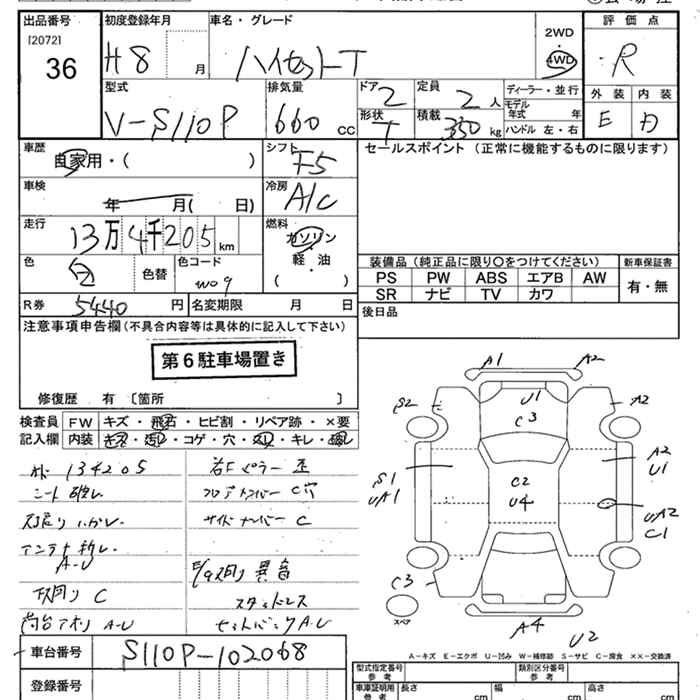 出品番号
[2072]
36
初度登録年月
H8 月
車名・グレード
ハイゼットT
2WD
4WD
評価点
R
外装 内装
E D
型式
V-S110P
排気量
660 cc
ドア
2
定員
2 人
形状
T
積載
350 kg
ディーラー・並行
モデル年式 年
ハンドル 左・右
車歴
自家用・( )
シフト
F5
セールスポイント (正常に機能するものに限ります)
車検
年 月( 日)
冷房
A/C
走行
13万4千205km
燃料
ガソリン
・
軽油
・
( )
色
白
色替
色コード
W09
装備品(純正品に限り○をつけてください)
新車保証書
PS PW ABS エアB AW
SR ナビ TV カワ
有・無
R券 5440 円
名変期限 月 日
後日品
注意事項申告欄(不具合内容等は具体的に記入して下さい)
第6駐車場置き
修復歴 有 〔箇所 〕
検査員記入欄
FW キズ・飛石・ヒビ割・リペア跡・×要
内装 キズ・汚レ・コゲ・穴・スレ・キレ・破レ
134205
右Fピラー 歪
シート破レ
フロアメンバー C穴
サイドメンバー C
A-U
異音
下回り C
スタッドレス
荷台アオリ A-U
セットバックA.U
A1 A2
U1
C3
S2
A2
S1
UA1
C2
U4
A2
U1
UA2
C1
C3
スペア
A4
U2
A―キズ E―エクボ U―凹み W―補修跡 S―サビ C―腐食 ××―交換済
車台番号 S110P-102068
登録番号
型式指定番号
参考
類別区分番号
参考
車庫証明用
参考
長さ cm
幅 cm
高さ cm